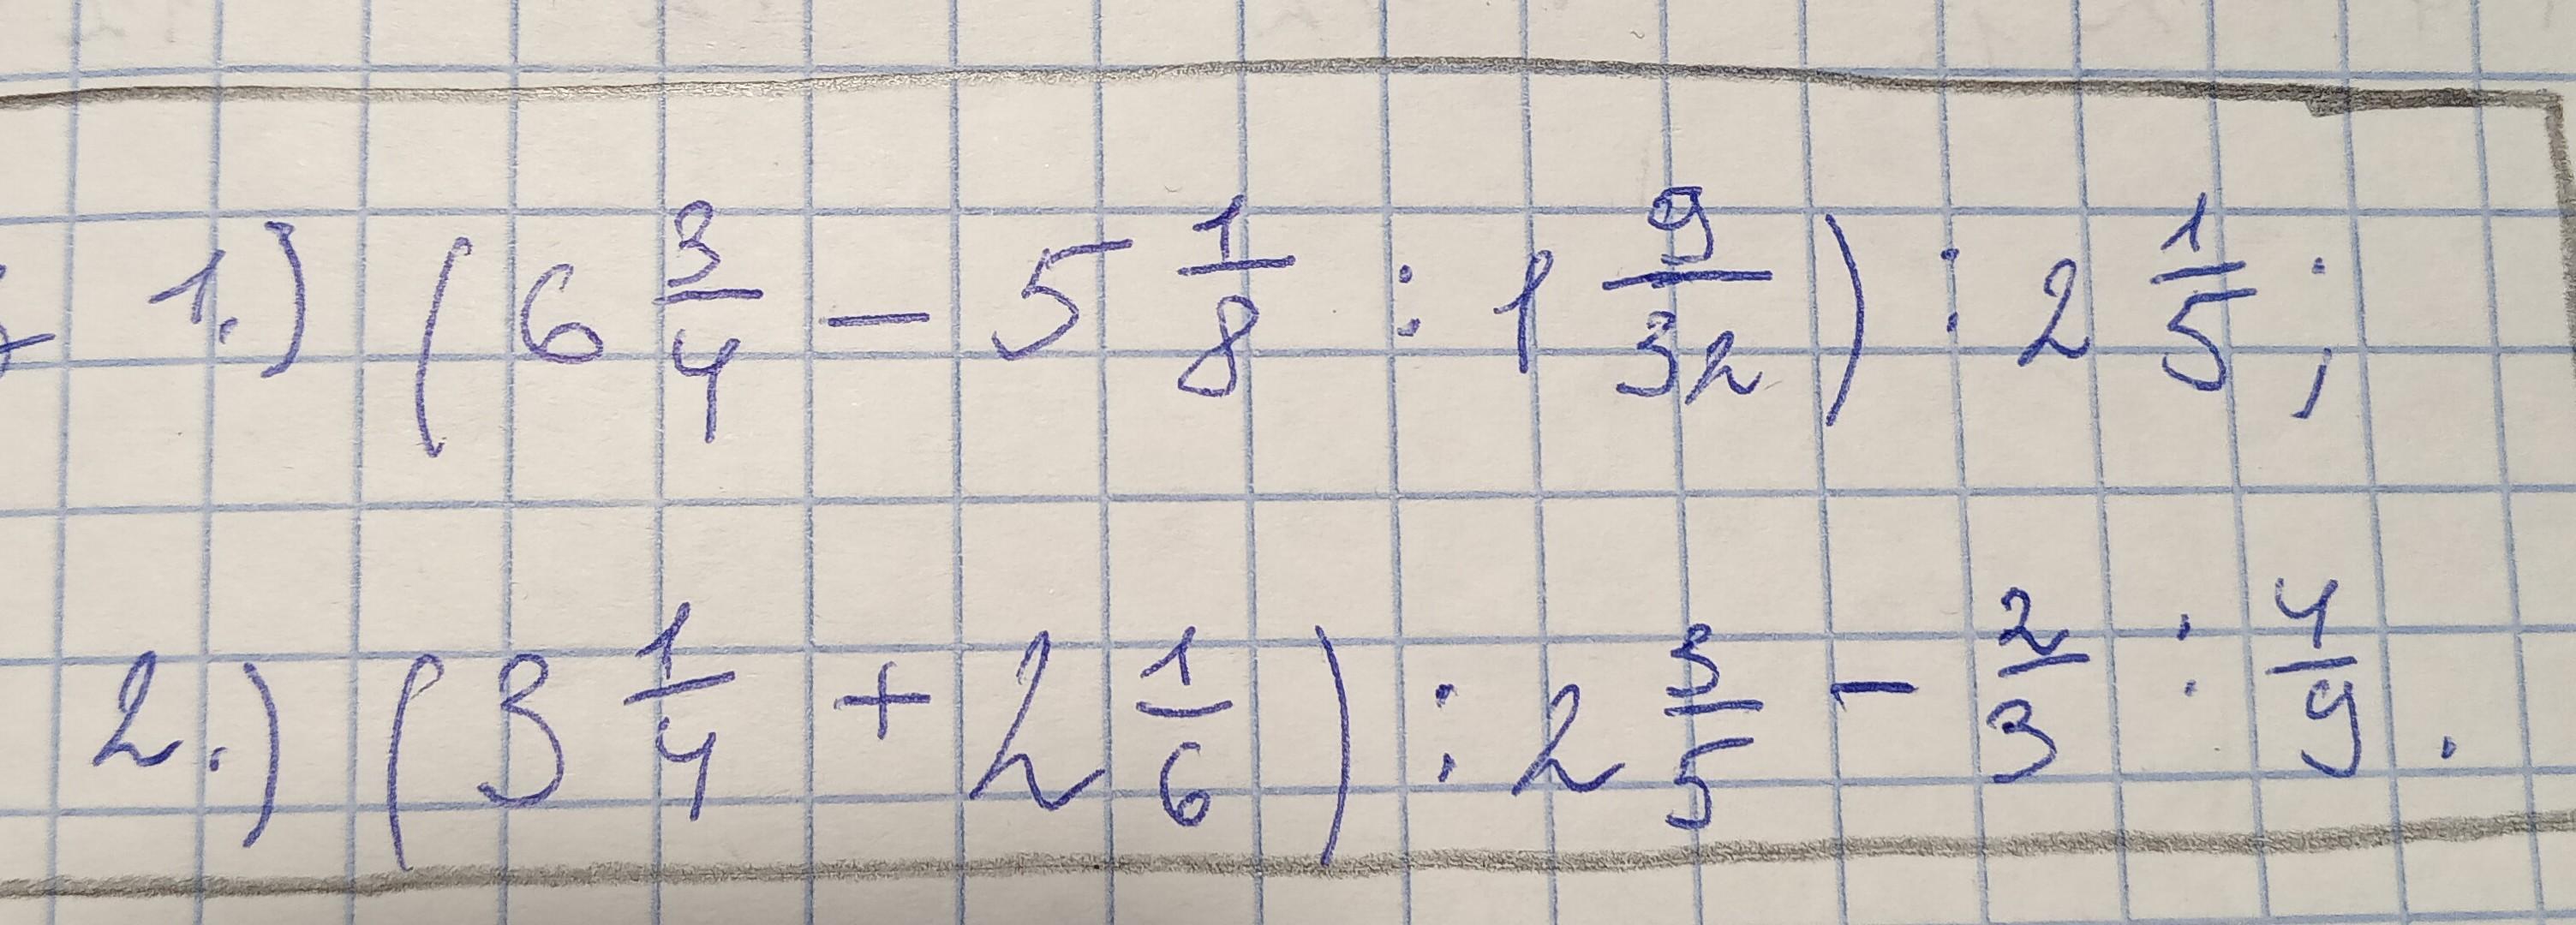 1.) (6 3/4 - 5 1/8 : 1 9/32) : 2 1/5;
2.) (3 1/4 + 2 1/6) : 2 3/5 - 2/3 : 4/9.